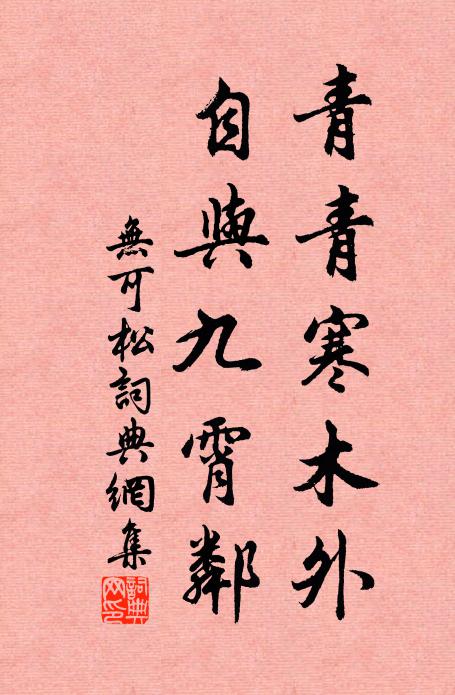 青青寒木外
自與九霄鄰
無可松詞典網集
詞典网印